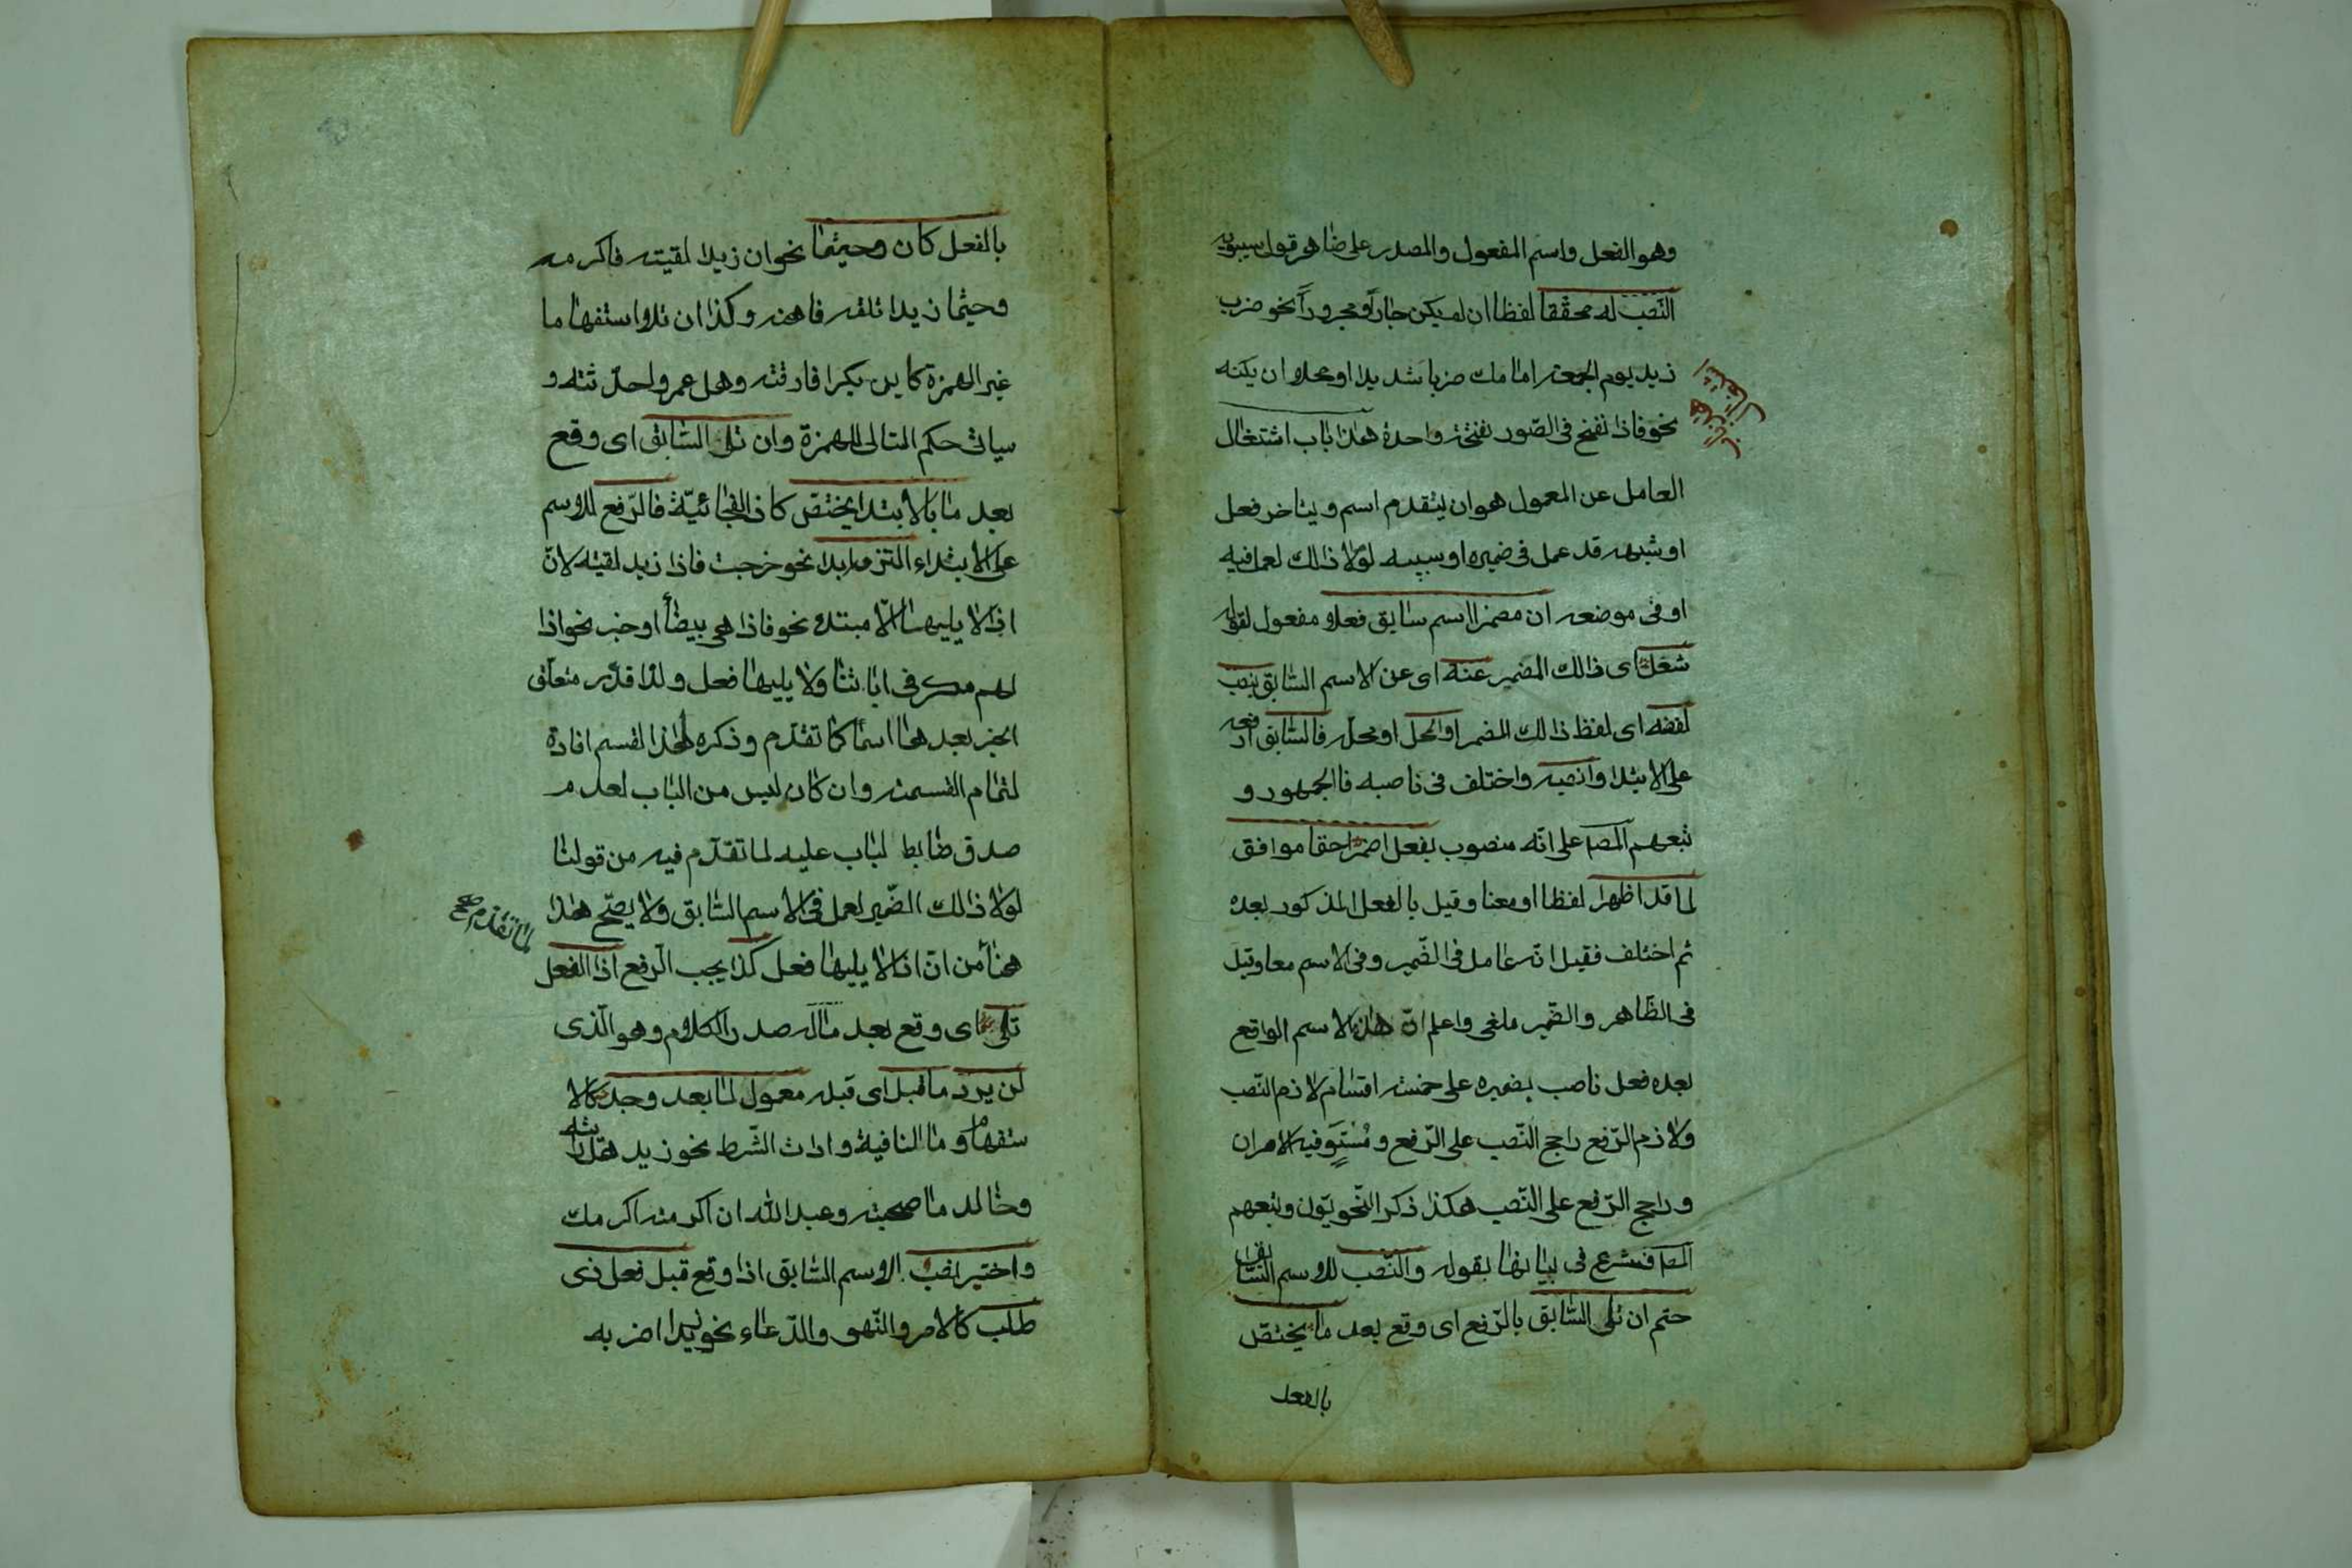 وهو الفعل واسم المفعول والمصدر على ضاهر قول سيبويه
النّصب له محقّقا لفظا ان لم يكن جارّاً ومجروراً نحو ضرب
زيد يوم الجمعة امامك ضربا شديدا او محلا ان يكنه
نحو فاذا نفخ فى الصّور نفخة واحدة هذا باب اشتغال
العامل عن المعمول هو ان يتقدم اسم ويتاخر فعل
او شبهه قد عمل فى ضميره او سببه لولا ذالك لعمل فيه
او فى موضعه ان مضمر اسم سابق فعلا مفعول لقوله
شغل اى ذالك المضمير عنه اى عن الاسم السّابق بنصب
لفظه اى لفظ ذالك المضمر او المحل او محلّه فالسّابق ارفعه
على الابتدا وانصبه واختلف فى ناصبه فالجمهور و
تبعهم المص على انّه منصوب بفعل اضمرا حقا موافق
لما قد اظهرا لفظا او معنا وقيل بالفعل المذكور بعده
ثم اختلف فقيل انّه عامل فى الضّمير وفى الاسم معا وقيل
فى الظّاهر والضّمير ملغى واعلم انّ هذا الاسم الواقع
بعده فعل ناصب بضميره على خمسة اقسام لازم النّصب
ولازم الرّفع راجح النّصب على الرّفع ومُسْتَوٍ فيه الامران
وراجح الرّفع على النّصب هكذا ذكر النّحويّون وتبعهم
المص فشرع فى بيانها بقوله والنّصب للاسم السّابق
حتم ان تلى السّابق بالرّفع اى وقع بعد ما يختصّ
بالفعل
بالفعل كان وحيثما نحو ان زيدا لقيته فاكرمه
وحيثما زيدا تلقه فاهنه وكذا ان تلا استفهاما
غير الهمزة كاين بكرا فارقته وهل عمرو احدّثته و
سياتى حكم التالى للهمزة وان تلى السّابق اى وقع
بعد ما بالابتدا يختصّ كاذا الفجائيّة فالرّفع للاسم
على الابتداء التزمه ابدا نحو خرجت فاذا زيد لقيته لانّ
اذا لا يليها الّا مبتدء نحو فاذا هى بيضاً او خبر نحو اذا
لهم مكر فى اياتنا ولا يليها فعل ولذا قدّر متعلّق
الخبر بعدها اسما كما تقدّم وذكره لهذا القسم افادة
لتمام القسمة وان كان ليس من الباب لعدم
صدق ضابط لباب عليه لما تقدّم فيه من قولنا
لولا ذالك الضّمير لعمل فى الاسم السّابق ولا يصّح هذا
لما تقدّم صح
هنا من انّ اذا لا يليها فعل كذا يجب الرّفع اذا الفعل
تلى اى وقع بعد ما له صدر الكلام وهو الّذى
لن يرد ما قبل اى قبله معمول لما بعد وجد كالا
ستفهام وما النافية وادات الشّرط نحو زيد هل رايته
وخالد ما صحبته وعبد اللّه ان اكرمته اكرمك
واختير نصب الاسم السّابق اذا وقع قبل فعل ذى
طلب كالامر والنّهى والدّعاء نحو زيدا اضربه